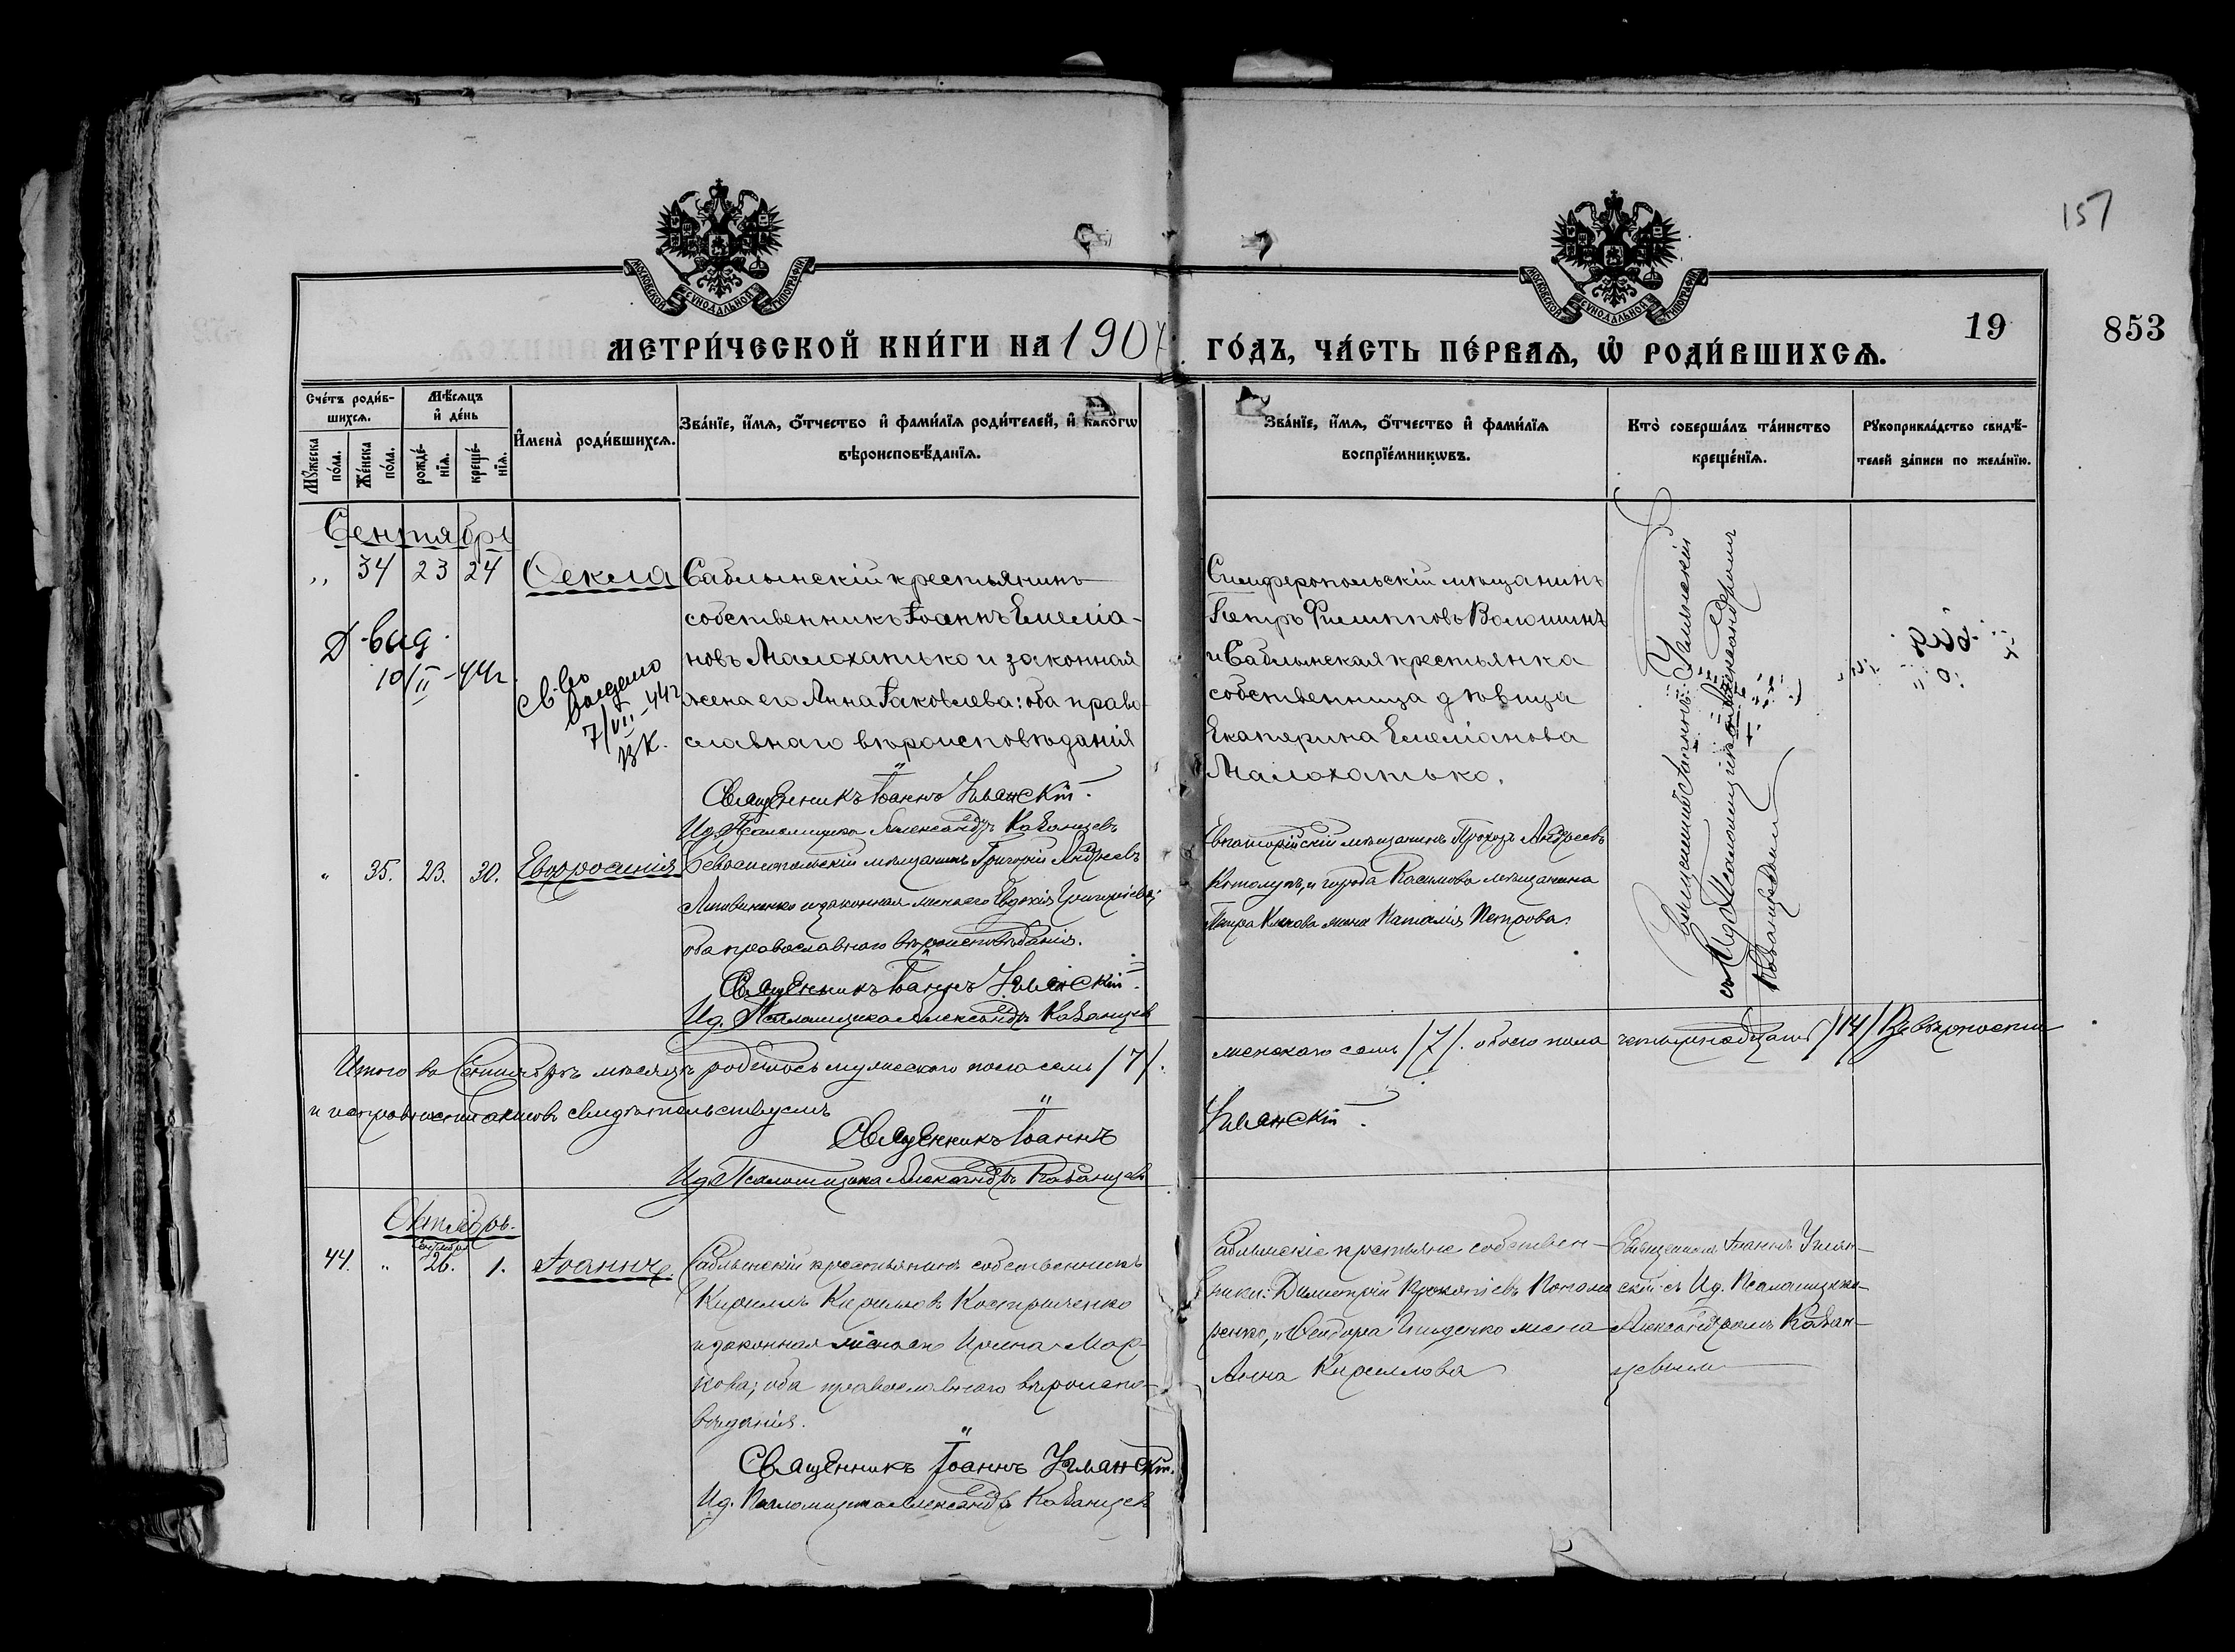 157
МОСКОВСКОЙ СУНОДАЛЬНОЙ ТИПОГРАФІИ
МОСКОВСКОЙ СУНОДАЛЬНОЙ ТИПОГРАФІИ
МЕТРИ́ЧЕСКОЙ КНИ́ГИ НА 1907 ГО́ДЪ, ЧА́СТЬ ПЕ́РВАѦ, Ѡ҆ РОДИ́ВШИХСѦ.
19
853
Сче́тъ роди́в-
шихсѧ.
Мꙋ́жеска по́ла.
Же́нска по́ла.
Мѣ́сѧцъ
и҆ де́нь
рожде́-
нїѧ.
креще́-
нїѧ.
И҆мена̀ роди́вшихсѧ.
Зва́нїе, и҆́мѧ, ѻ҆́тчество и҆ фами́лїѧ роди́телей, и҆ како́гѡ
вѣроисповѣ́данїѧ.
Зва́нїе, и҆́мѧ, ѻ҆́тчество и҆ фами́лїѧ
воспрїе́мникѡвъ.
Кто̀ соверша́лъ та́инство
креще́нїѧ.
Рꙋкоприкла́дство свидѣ́-
телей за́писи по жела́нїю.
Сентябрь
„ 34 23 24 Ѳекла
Саблынскій крестьянинъ
собственникъ Іоаннъ Емелiа-
новъ Малохатько и законная
жена его Анна Іаковлева: оба право-
славнаго вѣроисповѣданія
Священникъ Іоаннъ Уманскій.
Ид. Псаломщика Александръ Кабанцевъ
Д. выд.
10/II-44г.
Св-во
выдано
7/VII-44г
Симферопольскій мѣщанинъ
Петръ Филипповъ Волошинъ
и Саблынская крестьянка
собственница дѣвица
Екатерина Емеліанова
Малохатько.
Священникъ Іоаннъ Уманскій
съ Ид. Псаломщика Александромъ
Кабанцевымъ
„ 35. 23. 30. Евфросинія
Севастопольскій мѣщанинъ Григорій Андреевъ
Литвиненко и законная жена его Евдокія Григорьева;
оба православнаго вѣроисповѣданія.
Священникъ Іоаннъ Уманскій.
Ид. Псаломщика Александръ Кабанцев
Евпаторійскій мѣщанинъ Прохоръ Андреевъ
и города Касимова мѣщанина
жена Наталія Петрова.
Итого въ Сентябрѣ мѣсяцѣ родилось мужескаго пола семь /7/. женскаго семь /7/. обоего пола четырнадцать /14/ Въ вѣрности
и исправности актовъ свидѣтельствуемъ
Священникъ Іоаннъ Уманскій.
Ид. Псаломщика Александръ Кабанцев
Октябрь.
44. „ Сентября 26. 1. Іоаннъ
Саблынскій крестьянинъ собственникъ
Кириллъ Кирилловъ Костриченко
и законная жена его Ирина Мар-
кова; оба православнаго вѣроиспо-
вѣданія.
Священникъ Іоаннъ Уманскій.
Ид. Псаломщика Александръ Кабанцев
Саблынскіе крестьяне собствен-
ники: Димитрій Прокопіевъ Понома
ренко, и Ѳеодора жена
Анна Кириллова
Священникъ Іоаннъ Уман-
скій съ Ид. Псаломщика
Александромъ Кабан-
цевымъ